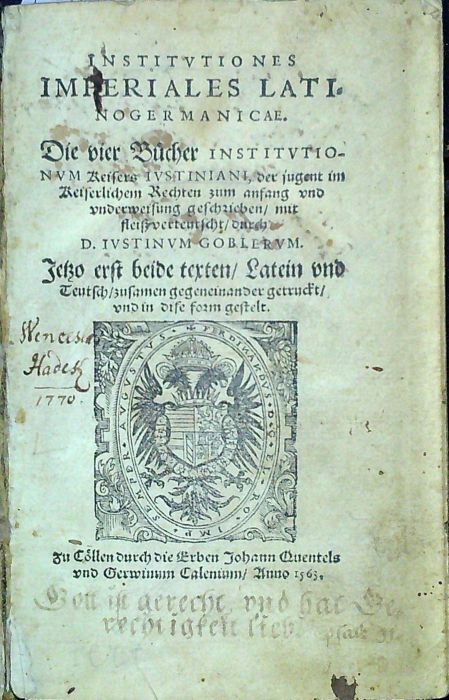 INSTITVTIONES
IMPERIALES LATI-
NOGERMANICAE.
Die vier Bücher INSTITVTIO-
NVM Keisers IVSTINIANI, der jugent im
Keiserlichem Rechten zum anfang vnd
vnderweisung geschrieben/ mit
fleiß verteutscht/ durch
D. IVSTINVM GOBLERVM.
Jetzo erst beide texten/ Latein vnd
Teutsch/ zusamen gegeneinander getruckt/
vnd in dise form gestelt.
Wencesl
1770.
FERDINANDVS D. G. EL. RO. IMP. SEMPER AVGVSTVS
Zu Cöllen durch die Erben Johann Quentels
vnd Gerwinum Calenium/ Anno 1563.
Gott ist gerecht, vnd hat Ge-
rechtigkeit lieb.